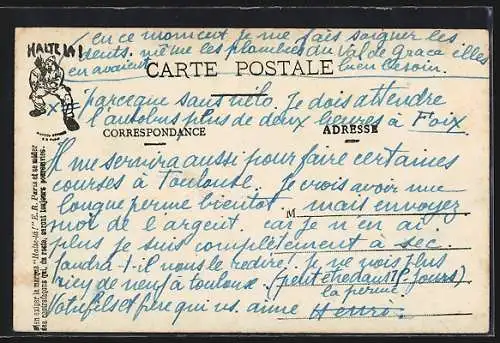 HALTE LÀ!
en ce moment je me fais soigner les
dents. même les plombées du Val de Grace elles
en avaient bien besoin.
CARTE POSTALE
x parceque sans vélo. Je dois attendre
l'autobus plus de deux heures à Foix
CORRESPONDANCE
ADRESSE
Il me servira aussi pour faire certaines
courses à Toulouse. Je crois avoir une
longue perme bientot. mais envoyez
M
moi de l'argent car je n'en ai
plus je suis complètement à sec.
faudra-t-il vous le redire! je ne vois plus
rien de neuf à toulouse. (petit etre dans 15 jours)
la perme
Votre fils et frère qui vs. aime Henri.
Bien exiger la marque "Halte-là!" E. R. Paris et se méfier
des contrefaçons qui, du reste, seront toujours poursuivies.